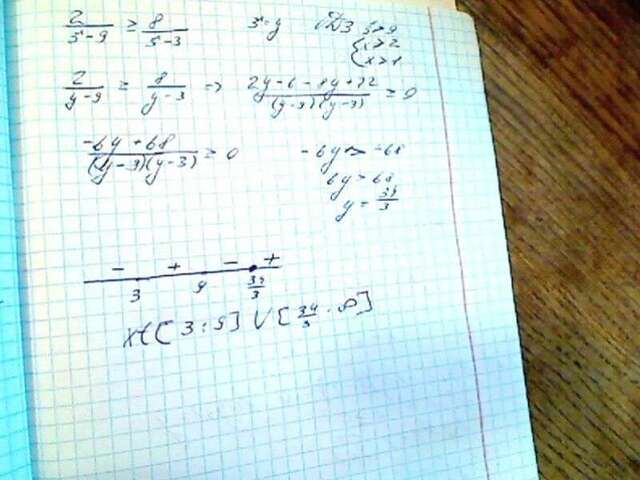 2/(3ˣ-9) ≥ 8/(3ˣ-3) 3ˣ=y ОДЗ 3ˣ>9
{x>2
x>1
2/(y-9) ≥ 8/(y-3) => (2y-6-8y+72)/((y-9)(y-3)) ≥ 0
(-6y+68)/((y-9)(y-3)) ≥ 0 -6y > -68
6y = 68
y = 34/3
- + - +
3 9 34/3
x∈[3;9]∪[34/3;∞]